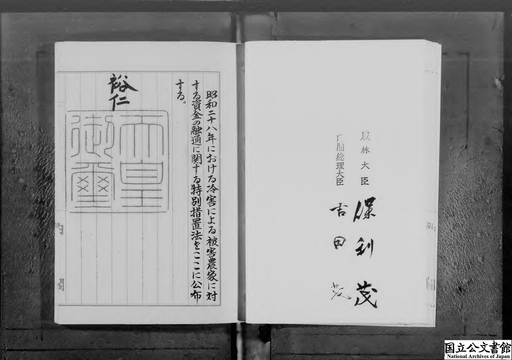 農林大臣 保利茂
内閣総理大臣 吉田茂
昭和二十八年における冷害による被害農家に対
する資金の融通に関する特別措置法をここに公布
する。
裕仁
天皇
御璽
国立公文書館
National Archives of Japan